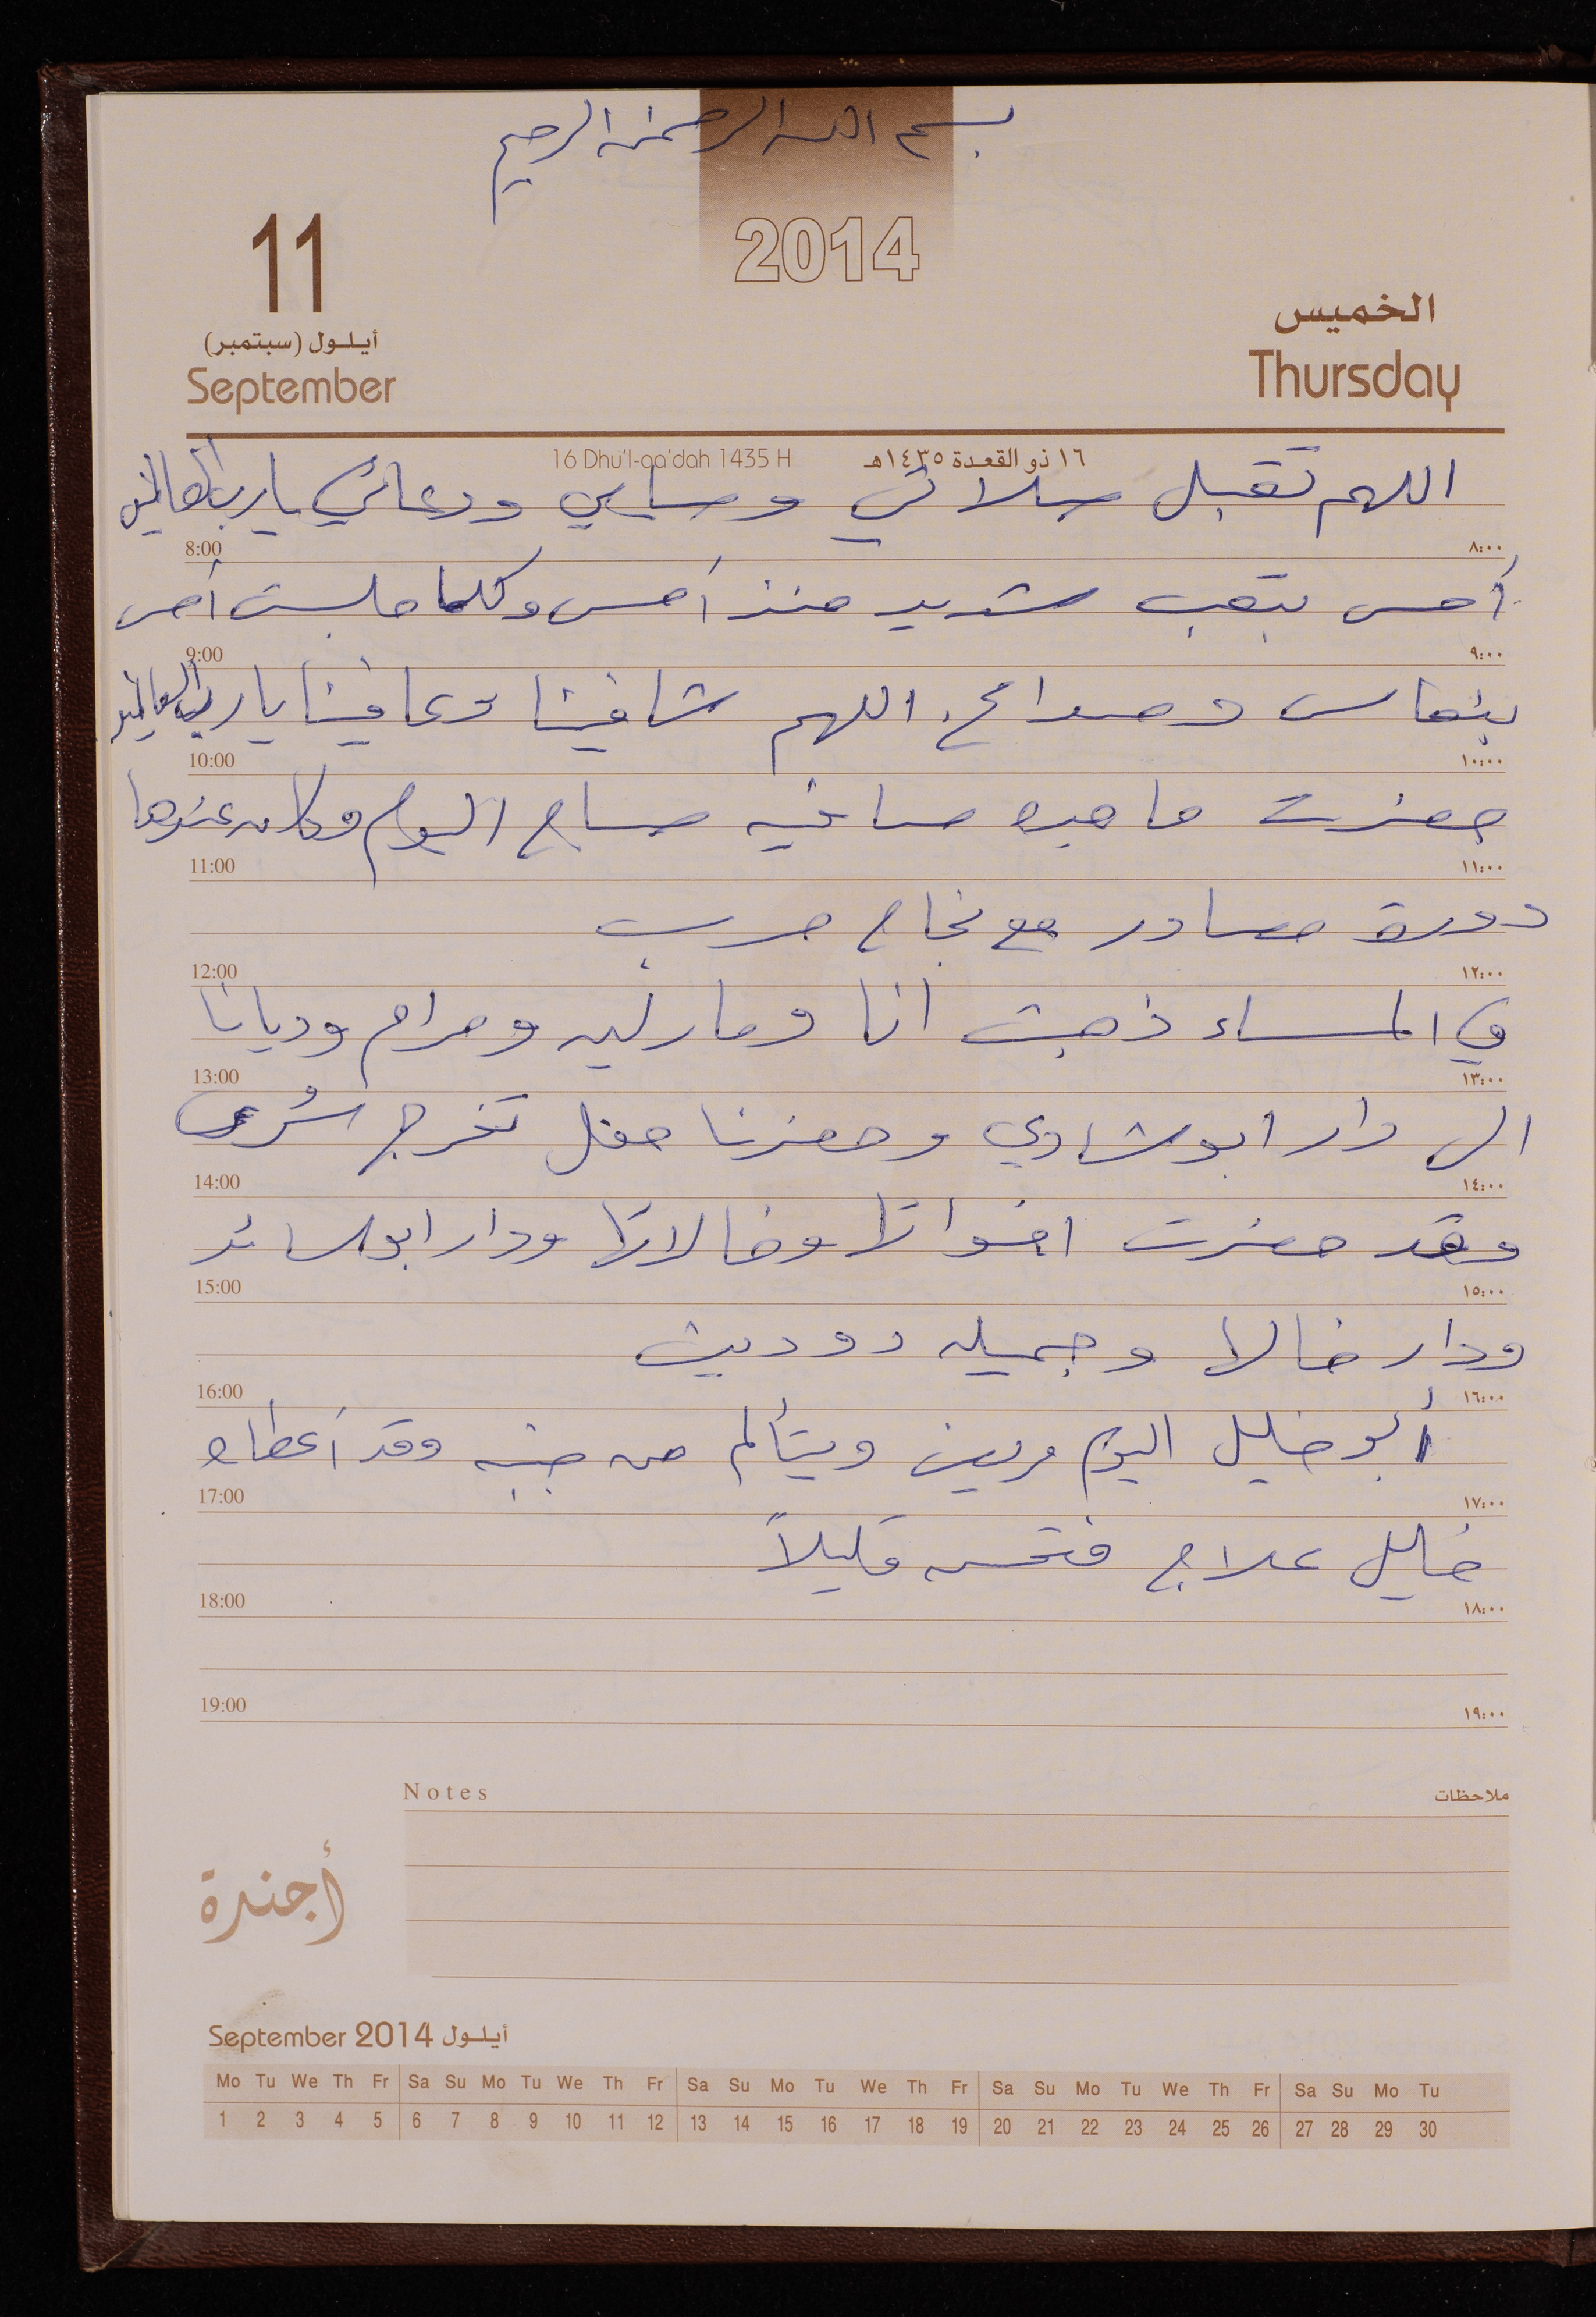 بسم الله الرحمن الرحيم
2014
11
أيلول (سبتمبر)
September
الخميس
Thursday
16 Dhu'l-qa'dah 1435 H ١٦ ذو القعدة ١٤٣٥هـ
اللهم تقبل صلاتي وصيامي ودعائي يا رب العالمين
8:00 ٨:٠٠
أحس بتعب شديد منذ أمس وكلما جلست أحس
9:00 ٩:٠٠
بنعاس وصداع. اللهم شافينا وعافينا يا رب العالمين
10:00 ١٠:٠٠
حضرت ماجده صافيه صباح اليوم وكان عندها
11:00 ١١:٠٠
دورة مصادر مع نجاح حرب
12:00 ١٢:٠٠
في المساء ذهبت انا ومارلين ومرام وديانا
13:00 ١٣:٠٠
الى دار ابو شادي وحضرنا حفل تخرج سُرى
14:00 ١٤:٠٠
وقد حضرت اخواتها وخالاتها ودار ابو السائد
15:00 ١٥:٠٠
ودار خالها وجميله دودين
16:00 ١٦:٠٠
أبو خليل اليوم مريض ويتألم من جنبه وقد أعطاه
17:00 ١٧:٠٠
خليل علاج فتحسن قليلاً
18:00 ١٨:٠٠
19:00 ١٩:٠٠
Notes ملاحظات
أجندة
September 2014 أيلول
Mo Tu We Th Fr Sa Su Mo Tu We Th Fr Sa Su Mo Tu We Th Fr Sa Su Mo Tu We Th Fr Sa Su Mo Tu
1 2 3 4 5 6 7 8 9 10 11 12 13 14 15 16 17 18 19 20 21 22 23 24 25 26 27 28 29 30